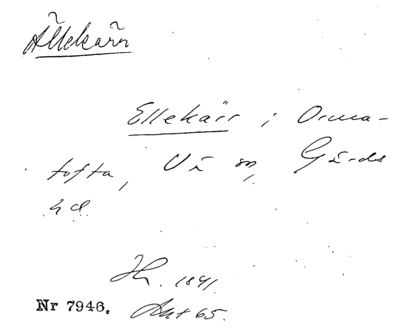 Ällekärr
Ellekärr i Orma-
tofta, Vä sn, Gärds
hd.
Hr. 1841.
Nr 7946. Ant 65.